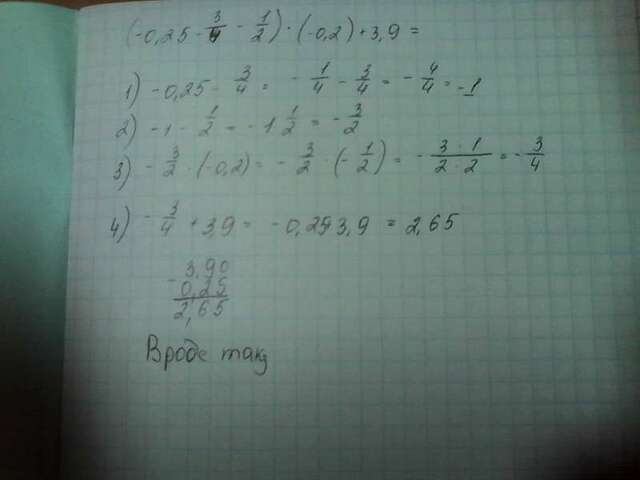 (-0,25 - 3/4 - 1/2) · (-0,2) + 3,9 =
1) -0,25 - 3/4 = -1/4 - 3/4 = -4/4 = -1
2) -1 - 1/2 = -1 1/2 = -3/2
3) -3/2 · (-0,2) = -3/2 · (-1/2) = -3·1/2·2 = -3/4
4) -3/4 + 3,9 = -0,25+3,9 = 2,65
-3,90
0,25
2,65
Вроде так